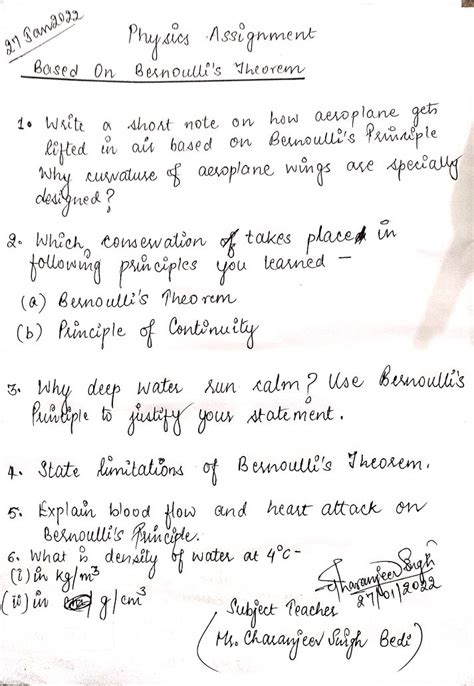 27 Jan 2022
Physics Assignment
Based On Bernoulli's Theorem
1. Write a short note on how aeroplane gets
lifted in air based on Bernoulli's Principle
Why curvature of aeroplane wings are specially
designed?
2. Which conservation of takes place in
following principles you learned -
(a) Bernoulli's Theorem
(b) Principle of Continuity
3. Why deep water run calm? Use Bernoulli's
Principle to justify your statement.
4. State limitations of Bernoulli's Theorem.
5. Explain blood flow and heart attack on
Bernoulli's Principle.
6. What is density of water at 4°C-
(i) in kg/m³
(ii) in g/cm³
Charanjeev Singh
27/01/2022
Subject Teacher
(Mr. Charanjeev Singh Bedi)